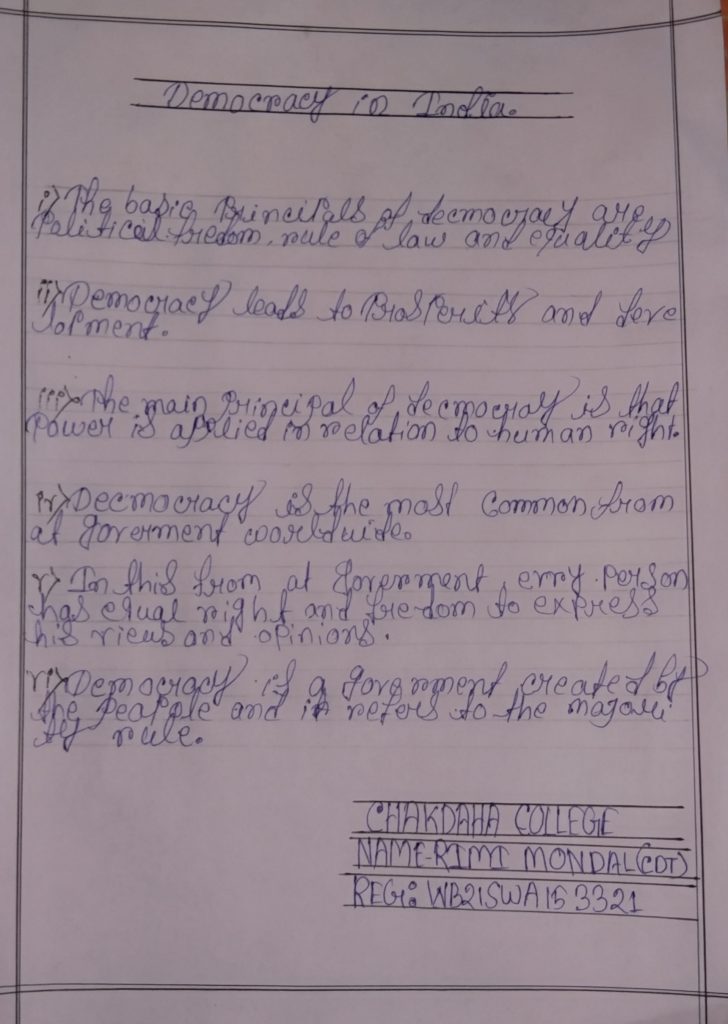 Democracy in India.
i) The basic Principals of decmocracy are
Palitical fredom, rule of law and equality
ii) Democracy leads to ProsPerity and deve
lopment.
iii) The main principal of decmocracy is that
Power is applied in relation to human right.
iv) Decmocracy is the most Common from
at goverment woorldwide.
v) In this from at Goverment, erry Person
has equal right and fredom to express
his views and opinions.
vi) Democracy is a government created by
the peaple and it refers to the majori
ty rule.
CHAKDAHA COLLEGE
NAME-RIMI MONDAL(CDT)
REG: WB21SWA153321